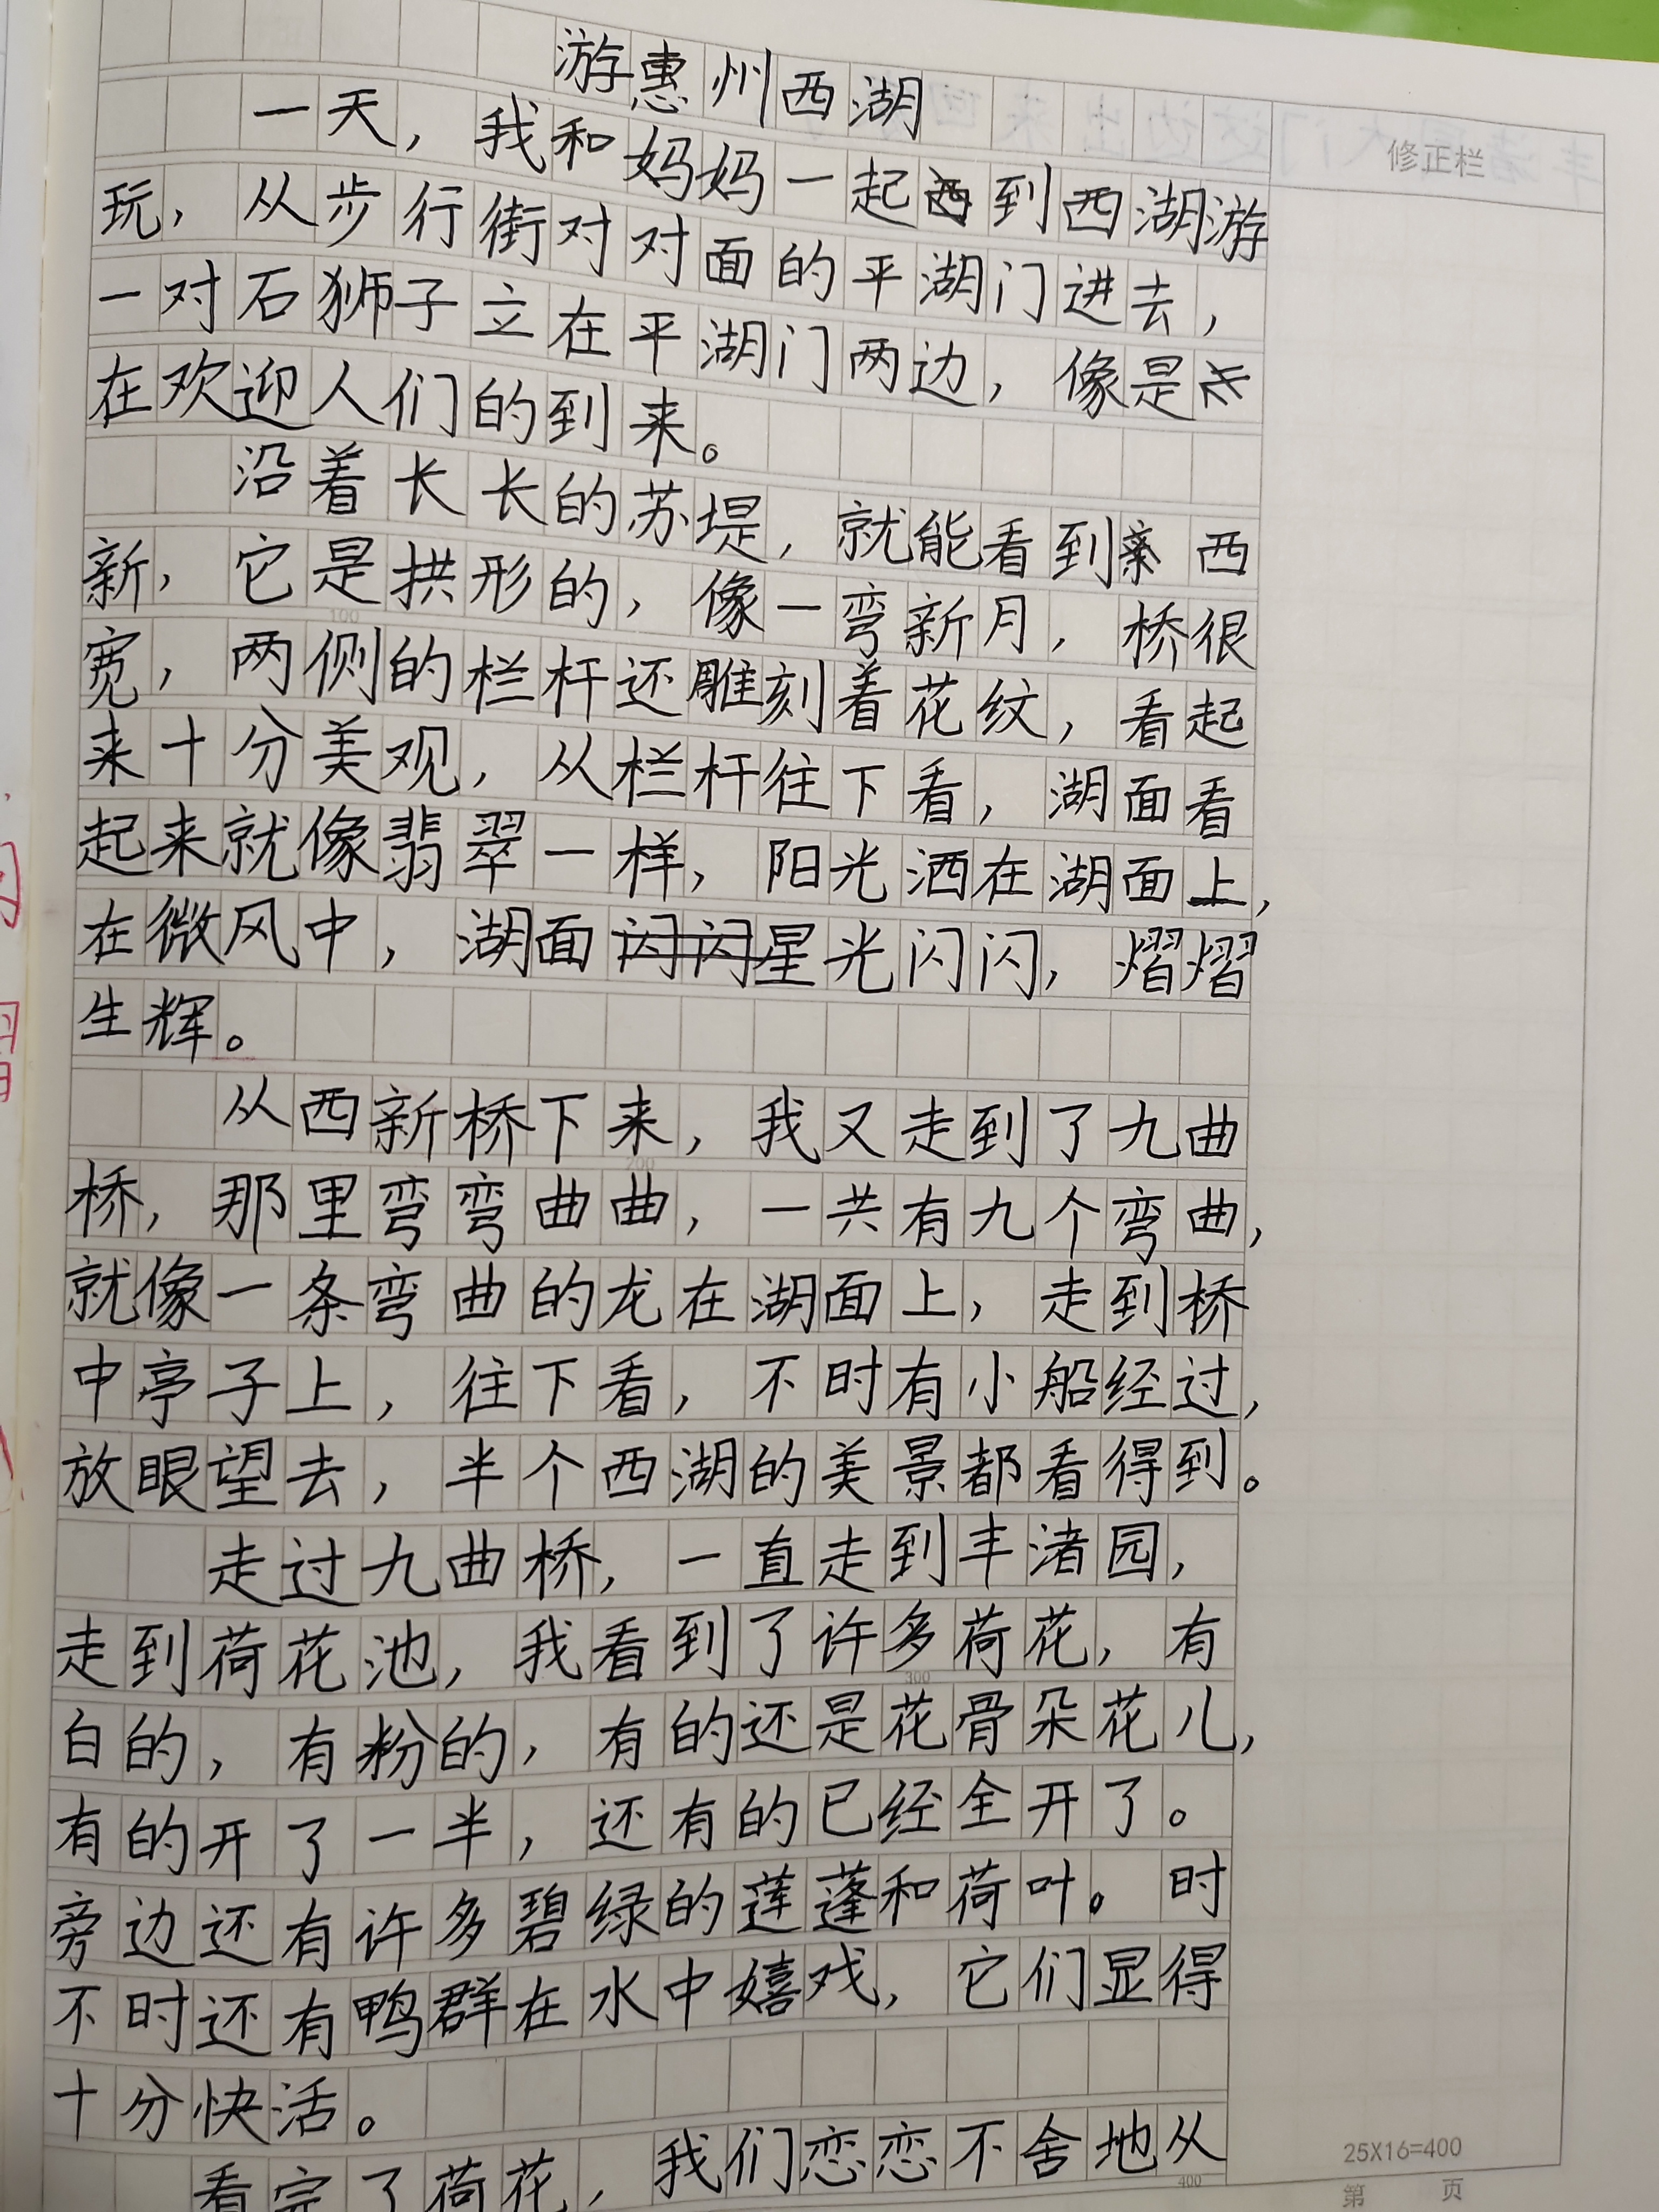 游惠州西湖
修正栏
一天，我和妈妈一起到西湖游
玩，从步行街对对面的平湖门进去，
一对石狮子立在平湖门两边，像是
在欢迎人们的到来。
沿着长长的苏堤，就能看到西
新，它是拱形的，像一弯新月，桥很
100
宽，两侧的栏杆还雕刻着花纹，看起
来十分美观，从栏杆往下看，湖面看
起来就像翡翠一样，阳光洒在湖面上，
在微风中，湖面闪闪星光闪闪，熠熠
生辉。
从西新桥下来，我又走到了九曲
200
桥，那里弯弯曲曲，一共有九个弯曲，
就像一条弯曲的龙在湖面上，走到桥
中亭子上，往下看，不时有小船经过，
放眼望去，半个西湖的美景都看得到。
走过九曲桥，一直走到丰渚园，
走到荷花池，我看到了许多荷花，有
300
白的，有粉的，有的还是花骨朵花儿，
有的开了一半，还有的已经全开了。
旁边还有许多碧绿的莲蓬和荷叶。时
不时还有鸭群在水中嬉戏，它们显得
十分快活。
看完了荷花，我们恋恋不舍地从
400
25X16=400
第 页